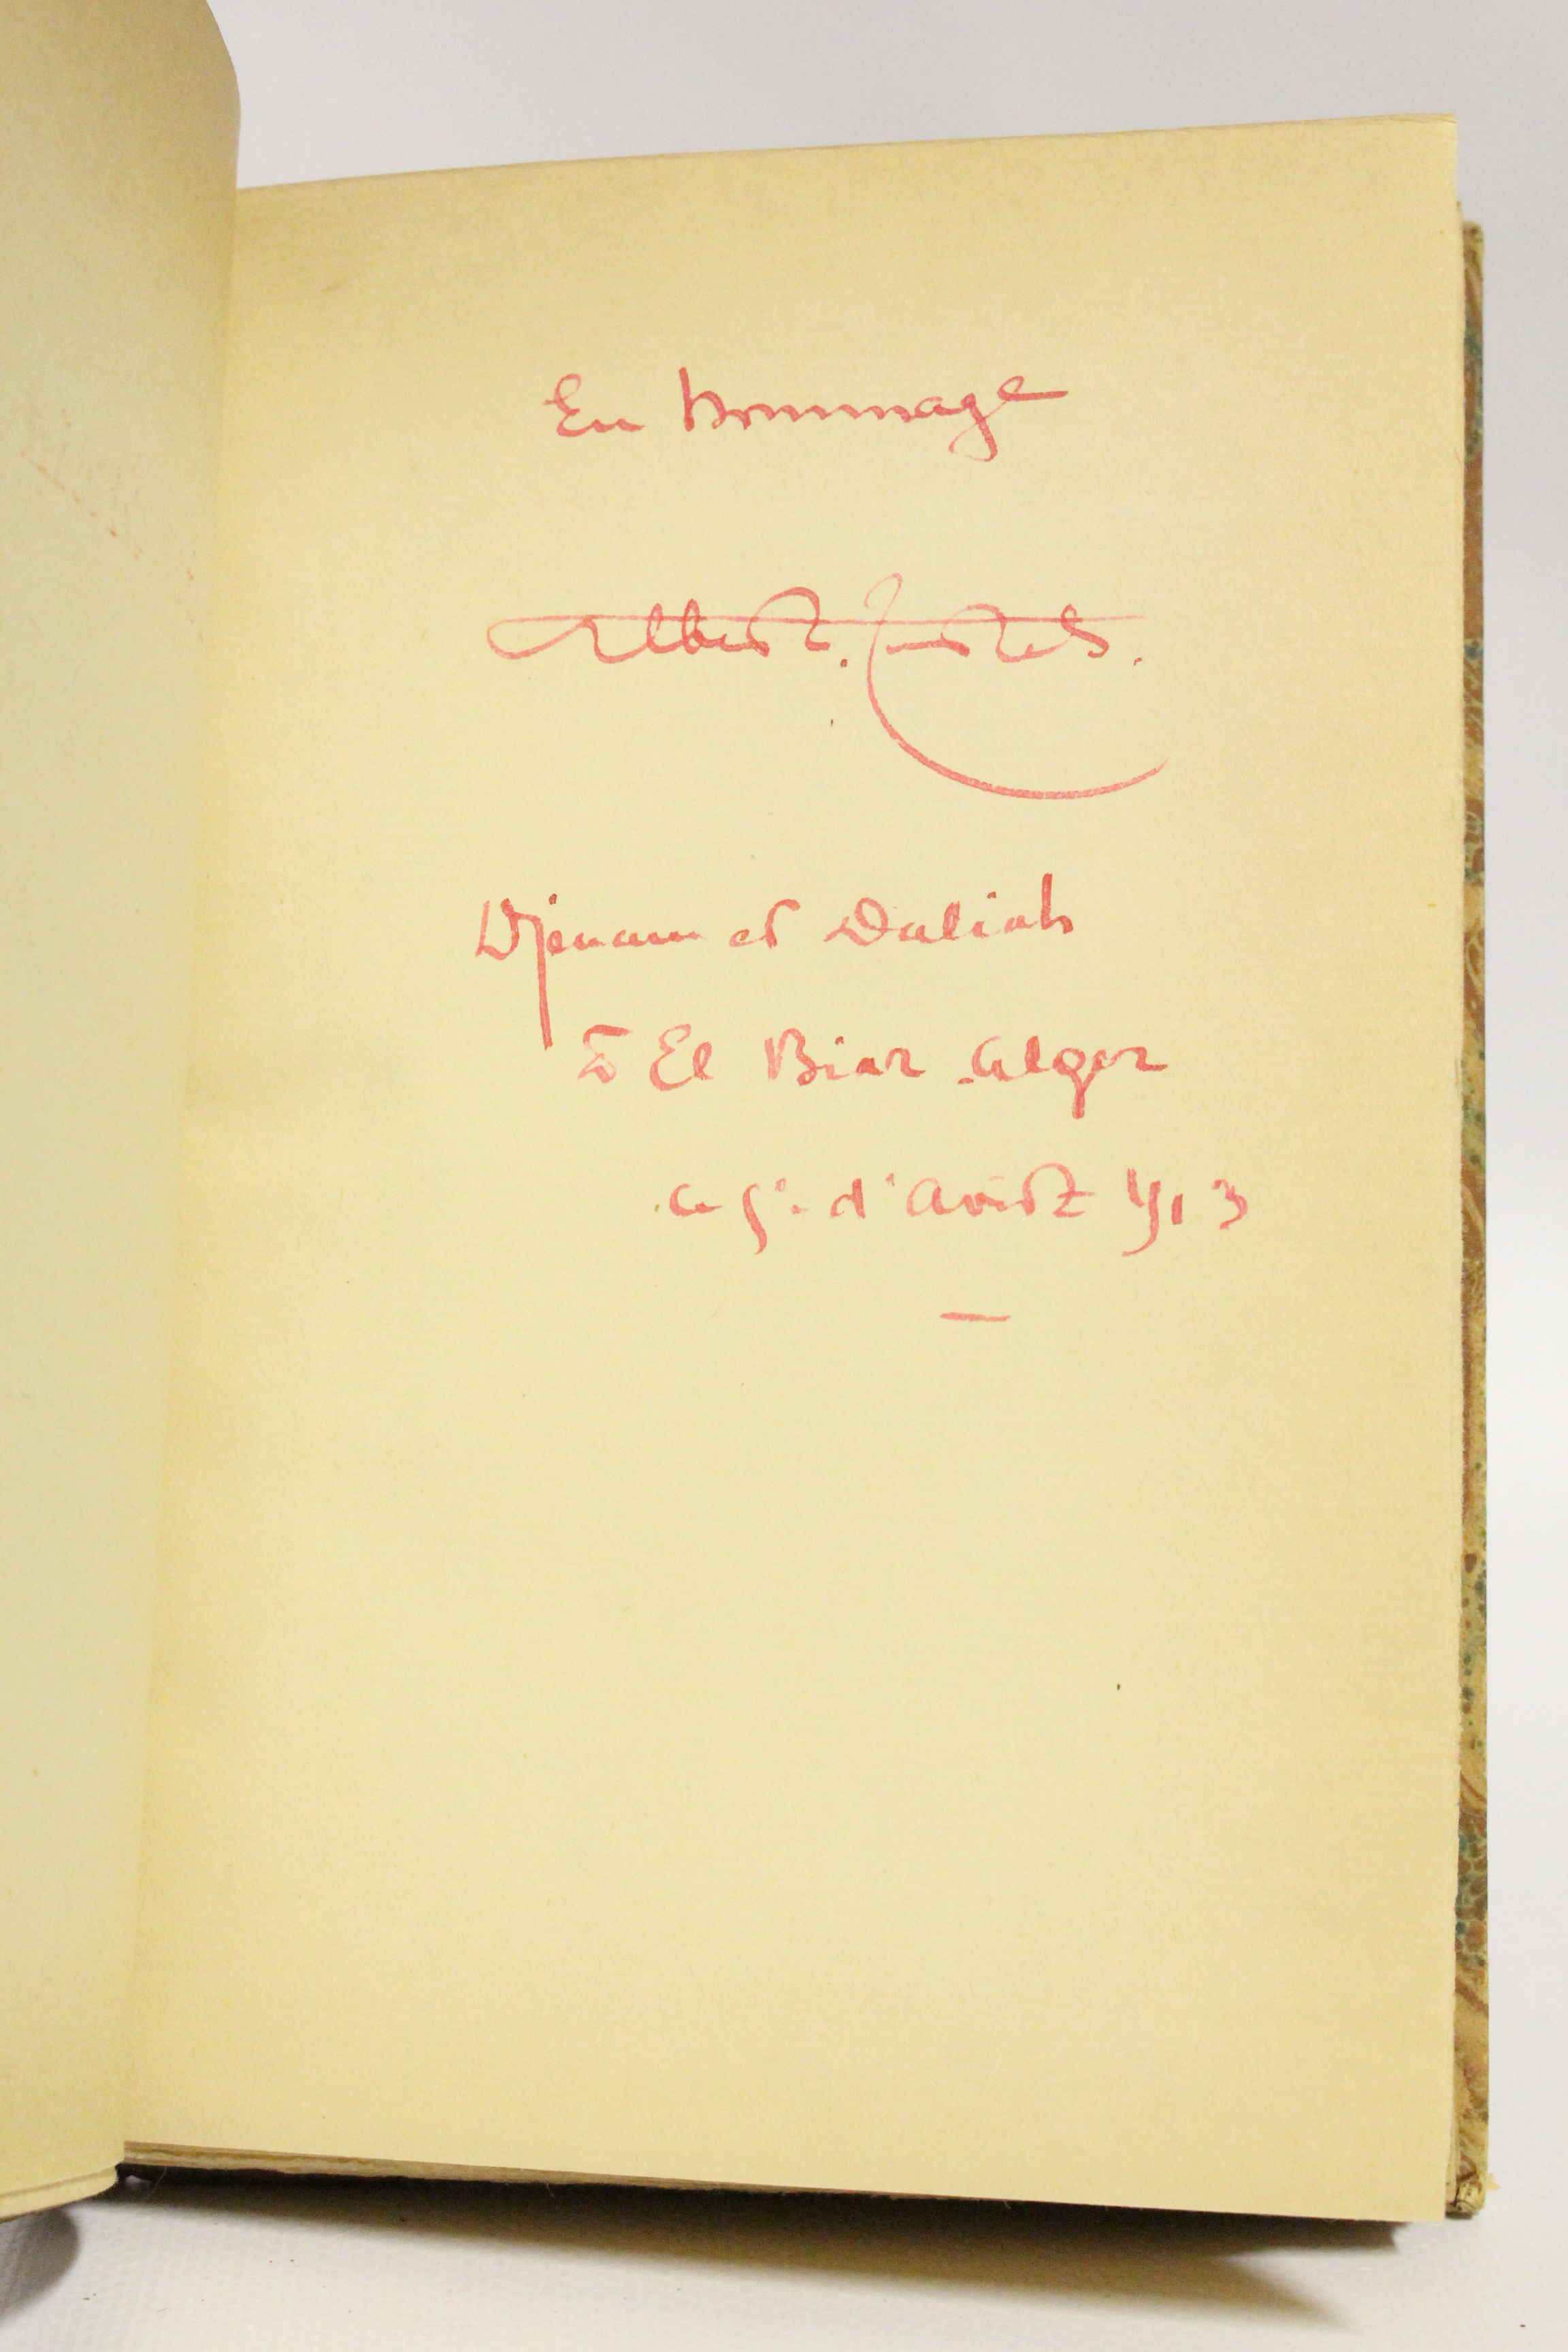 En hommage
Albert.
Djenan et Daliah
à El Biar Alger
ce d'Aoust 1913